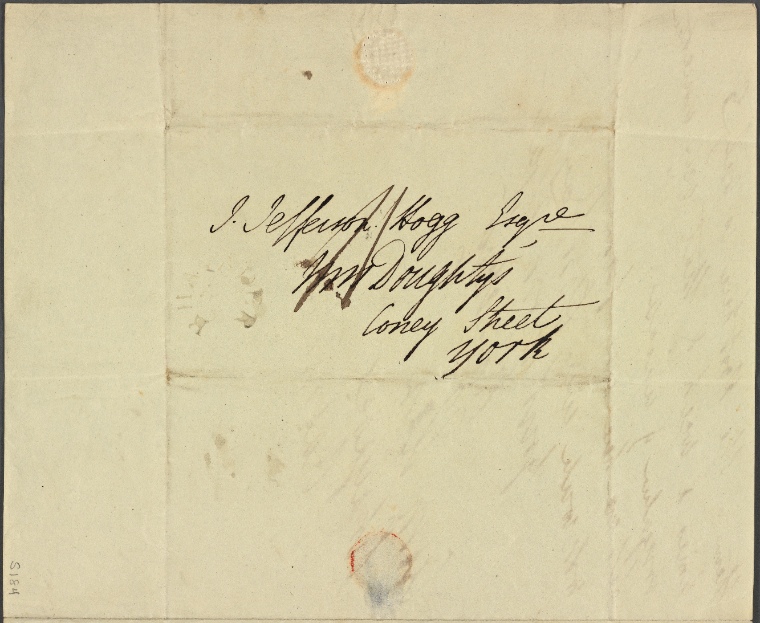 J. Jefferson Hogg Esqre
Doughtys
Coney Street
York
S184